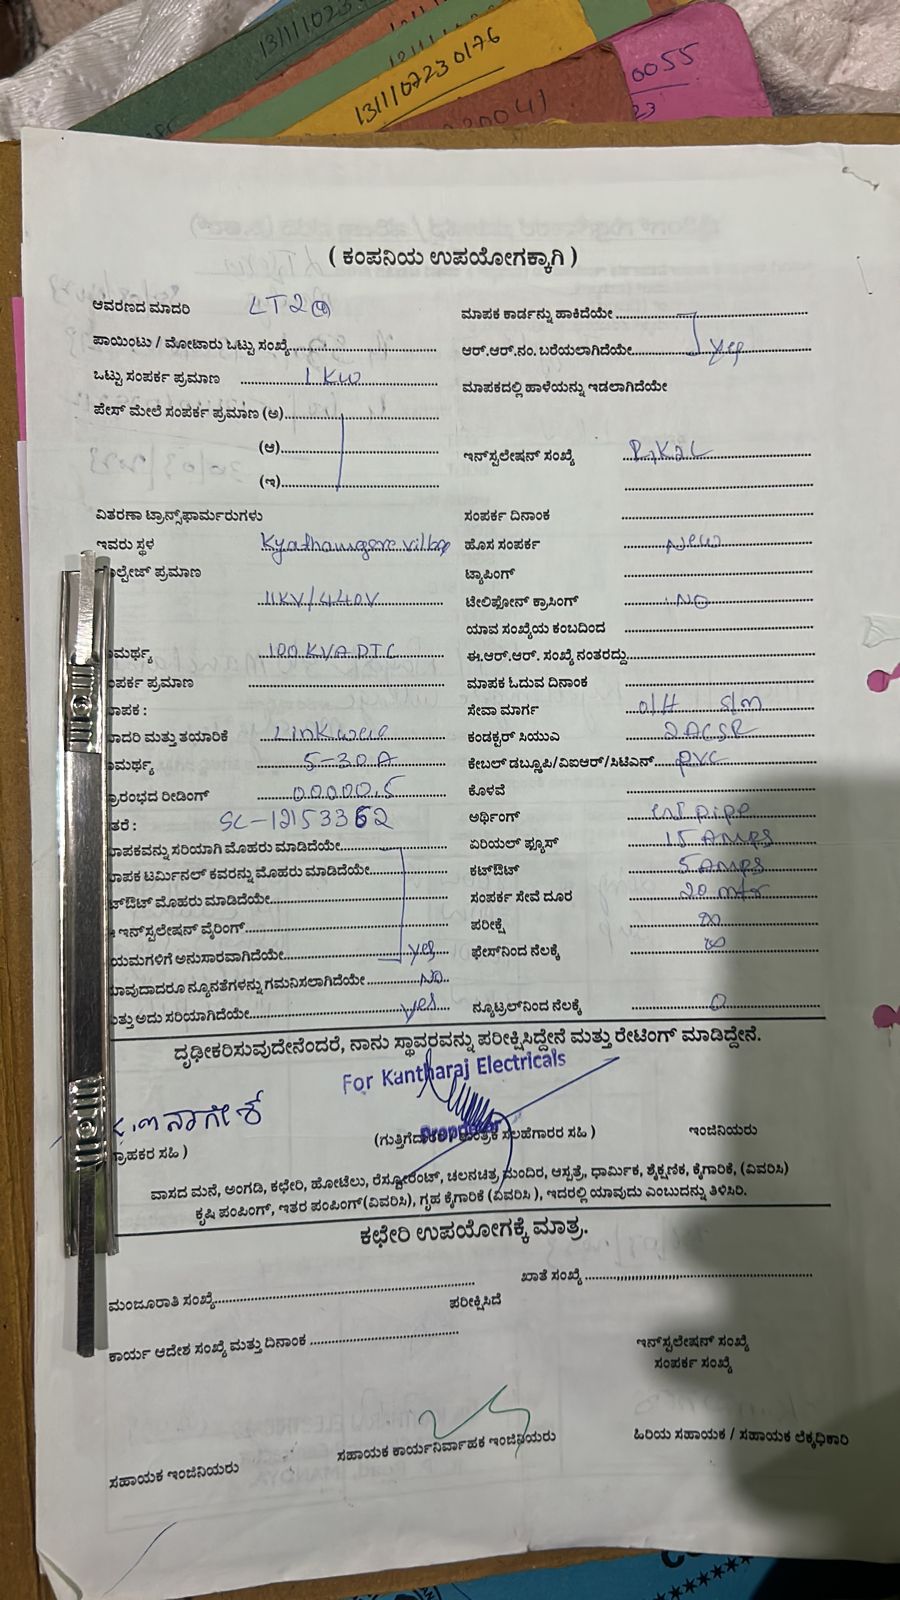 13111107230176
0055
23
20041
( ಕಂಪನಿಯ ಉಪಯೋಗಕ್ಕಾಗಿ )
ಆವರಣದ ಮಾದರಿ LT2
ಮಾಪಕ ಕಾರ್ಡನ್ನು ಹಾಕಿದೆಯೇ
ಪಾಯಿಂಟು / ಮೋಟಾರು ಓಟ್ಟು ಸಂಖ್ಯೆ
ಆರ್.ಆರ್.ನಂ. ಬರೆಯಲಾಗಿದೆಯೇ yes
ಒಟ್ಟು ಸಂಪರ್ಕ ಪ್ರಮಾಣ 1 KW
ಮಾಪಕದಲ್ಲಿ ಹಾಳೆಯನ್ನು ಇಡಲಾಗಿದೆಯೇ
ಪೇಸ್ ಮೇಲೆ ಸಂಪರ್ಕ ಪ್ರಮಾಣ (ಅ)
(ಆ)
(ಇ)
ಇನ್‌ಸ್ಟಲೇಷನ್ ಸಂಖ್ಯೆ
ವಿತರಣಾ ಟ್ರಾನ್ಸ್‌ಫಾರ್ಮರುಗಳು
ಸಂಪರ್ಕ ದಿನಾಂಕ
ಇವರು ಸ್ಥಳ
ಹೊಸ ಸಂಪರ್ಕ New
ಲ್ಟೇಜ್ ಪ್ರಮಾಣ
ಟ್ಯಾಪಿಂಗ್
11KV/440V
ಟೇಲಿಫೋನ್ ಕ್ರಾಸಿಂಗ್ NO
ಯಾವ ಸಂಖ್ಯೆಯ ಕಂಬದಿಂದ
ಮರ್ಥ್ಯ 100 KVA DTC
ಈ.ಆರ್.ಆರ್. ಸಂಖ್ಯೆ ನಂತರದ್ದು
ಂಪರ್ಕ ಪ್ರಮಾಣ
ಮಾಪಕ ಓದುವ ದಿನಾಂಕ
ಾಪಕ :
ಸೇವಾ ಮಾರ್ಗ O/H S/m
ಾದರಿ ಮತ್ತು ತಯಾರಿಕೆ Linkwell
ಕಂಡಕ್ಟರ್ ಸಿಯುಎ 2ACSR
ಮರ್ಥ್ಯ 5-30A
ಕೇಬಲ್ ಡಬ್ಲ್ಯೂಪಿ/ವಿಐಆರ್/ಸಿಟಿಎಸ್ PVC
್ರಾರಂಭದ ರೀಡಿಂಗ್ 00000.5
ಕೊಳವೆ
ತರೆ : SL-12153362
ಅರ್ಥಿಂಗ್ pipe
ಾಪಕವನ್ನು ಸರಿಯಾಗಿ ಮೊಹರು ಮಾಡಿದೆಯೇ
ಏರಿಯಲ್ ಫ್ಯೂಸ್ 15 AMPS
ಾಪಕ ಟರ್ಮಿನಲ್ ಕವರನ್ನು ಮೊಹರು ಮಾಡಿದೆಯೇ
ಕಟ್‌ಔಟ್ 5 AMPS
ಟ್‌ಔಟ್ ಮೊಹರು ಮಾಡಿದೆಯೇ
ಸಂಪರ್ಕ ಸೇವೆ ದೂರ 20 mtr
ಇನ್‌ಸ್ಟಲೇಷನ್ ವೈರಿಂಗ್
ಪರೀಕ್ಷೆ
ಯಮಗಳಿಗೆ ಅನುಸಾರವಾಗಿದೆಯೇ yes
ಫೇಸ್‌ನಿಂದ ನೆಲಕ್ಕೆ
ಾವುದಾದರೂ ನ್ಯೂನತೆಗಳನ್ನು ಗಮನಿಸಲಾಗಿದೆಯೇ No
ತ್ತು ಅದು ಸರಿಯಾಗಿದೆಯೇ yes
ನ್ಯೂಟ್ರಲ್‌ನಿಂದ ನೆಲಕ್ಕೆ 0
ದೃಢೀಕರಿಸುವುದೇನೆಂದರೆ, ನಾನು ಸ್ಥಾವರವನ್ನು ಪರೀಕ್ಷಿಸಿದ್ದೇನೆ ಮತ್ತು ರೇಟಿಂಗ್ ಮಾಡಿದ್ದೇನೆ.
For Kantharaj Electricals
ನಾಗೇಶ್
Proprietor
್ರಾಹಕರ ಸಹಿ )
(ಗುತ್ತಿಗೆದಾರರ / ತಾಂತ್ರಿಕ ಸಲಹೆಗಾರರ ಸಹಿ )
ಇಂಜಿನಿಯರು
ವಾಸದ ಮನೆ, ಅಂಗಡಿ, ಕಛೇರಿ, ಹೋಟೆಲು, ರೆಸ್ಟೋರೆಂಟ್, ಚಲನಚಿತ್ರ ಮಂದಿರ, ಆಸ್ಪತ್ರೆ, ಧಾರ್ಮಿಕ, ಶೈಕ್ಷಣಿಕ, ಕೈಗಾರಿಕೆ, (ವಿವರಿಸಿ)
ಕೃಷಿ ಪಂಪಿಂಗ್, ಇತರ ಪಂಪಿಂಗ್ (ವಿವರಿಸಿ), ಗೃಹ ಕೈಗಾರಿಕೆ (ವಿವರಿಸಿ ), ಇದರಲ್ಲಿ ಯಾವುದು ಎಂಬುದನ್ನು ತಿಳಿಸಿರಿ.
ಕಛೇರಿ ಉಪಯೋಗಕ್ಕೆ ಮಾತ್ರ.
ಮಂಜೂರಾತಿ ಸಂಖ್ಯೆ
ಖಾತೆ ಸಂಖ್ಯೆ
ಪರೀಕ್ಷಿಸಿದೆ
ಕಾರ್ಯ ಆದೇಶ ಸಂಖ್ಯೆ ಮತ್ತು ದಿನಾಂಕ
ಇನ್‌ಸ್ಟಲೇಷನ್ ಸಂಖ್ಯೆ
ಸಂಪರ್ಕ ಸಂಖ್ಯೆ
ಸಹಾಯಕ ಇಂಜಿನಿಯರು
ಸಹಾಯಕ ಕಾರ್ಯನಿರ್ವಾಹಕ ಇಂಜಿನಿಯರು
ಹಿರಿಯ ಸಹಾಯಕ / ಸಹಾಯಕ ಲೆಕ್ಕಧಿಕಾರಿ